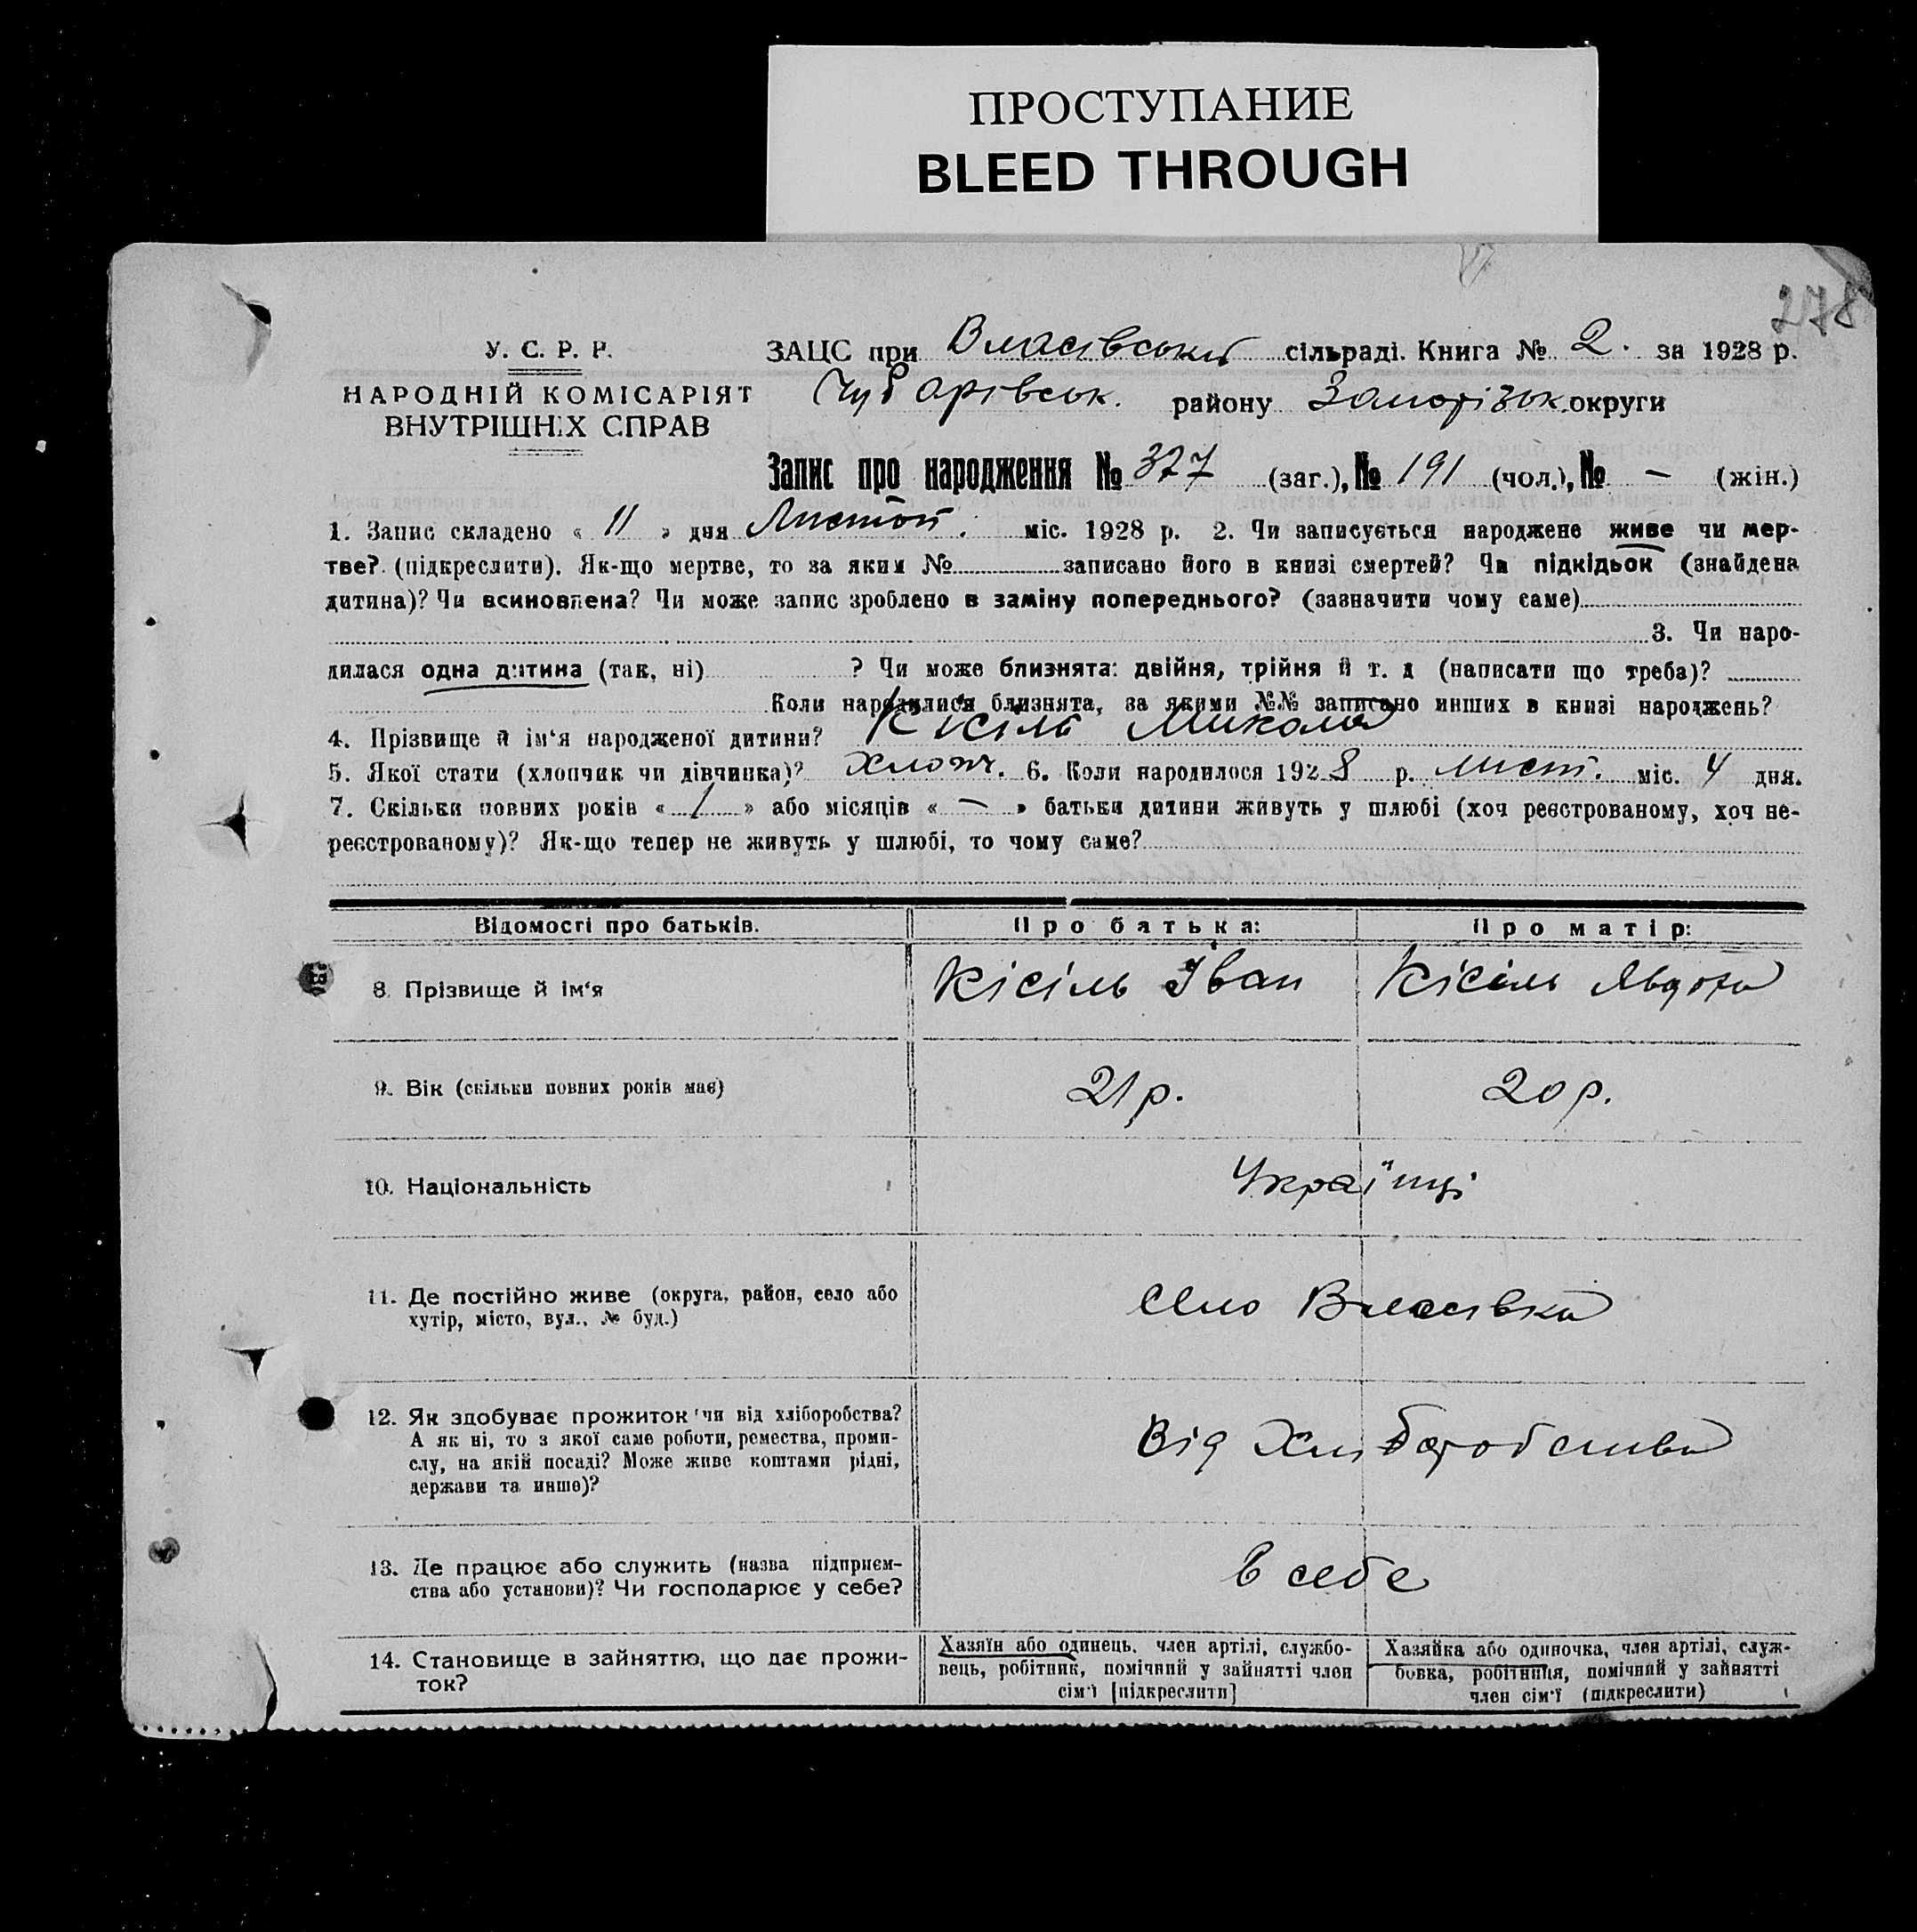 ПРОСТУПАНИЕ
BLEED THROUGH
278
У. С. Р. Р.
НАРОДНІЙ КОМІСАРІЯТ
ВНУТРІШНІХ СПРАВ
ЗАЦС при Власівській сільраді. Книга № 2. за 1928 р.
Чубарівськ. району Запоріжок. округи
Запис про народження № 377 (заг.), № 191 (чол.), № — (жін.)
1. Запис складено « 11 » дня Листоп. міс. 1928 р. 2. Чи записується народжене живе чи мер-
тве? (підкреслити). Як-що мертве, то за яким № записано його в книзі смертей? Чи підкідьок (знайдена
дитина)? Чи всиновлена? Чи може запис зроблено в заміну попереднього? (зазначити чому саме)
3. Чи наро-
дилася одна дитина (так, ні) ? Чи може близнята: двійня, трійня й т. д (написати що треба)?
Коли народилися близнята, за якими №№ записано инших в книзі народжень?
4. Прізвище й ім'я народженої дитини? Кісіль Микола
5. Якої стати (хлопчик чи дівчинка)? Хлопч. 6. Коли народилося 1928 р. лист. міс. 4 дня.
7. Скільки повних років « 1 » або місяців « — » батьки дитини живуть у шлюбі (хоч реєстрованому, хоч не-
реєстрованому)? Як-що тепер не живуть у шлюбі, то чому саме?
Відомості про батьків. Про батька: Про матір:
8. Прізвище й ім'я Кісіль Іван Кісіль Явдоха
9. Вік (скільки повних років має) 21 р. 20 р.
10. Національність Українці
11. Де постійно живе (округа, район, село або
хутір, місто, вул., № буд.) село Власівка
12. Як здобуває прожиток чи від хліборобства?
А як ні, то з якої саме роботи, ремества, проми-
слу, на якій посаді? Може живе коштами рідні,
держави та инше)? Від Хліборобства
13. Де працює або служить (назва підприєм-
ства або установи)? Чи господарює у себе? в себе
14. Становище в зайняттю, що дає прожи-
ток?
Хазяїн або одинець, член артілі, службо-
вець, робітник, помічний у зайнятті член
сім'ї [підкреслити]
Хазяйка або одиночка, член артілі, служ-
бовка, робітниця, помічний у зайнятті
член сім'ї (підкреслити)